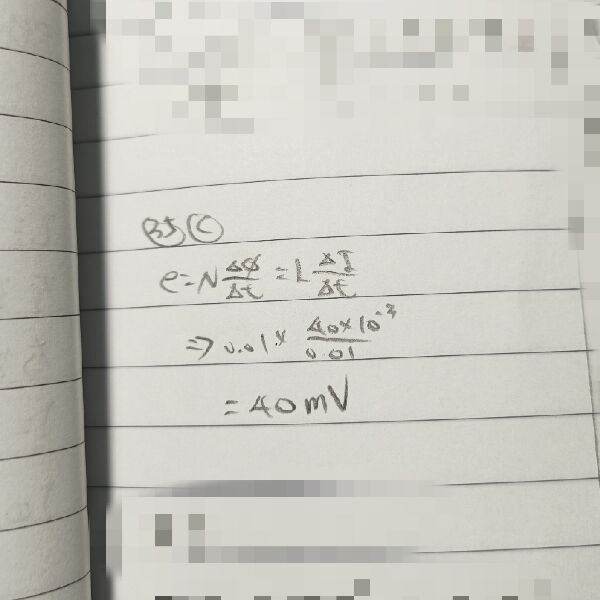 35 (C)
e = N ΔΦ/Δt = L ΔI/Δt
=> 0.01 × 40×10^-3/0.01
= 40 mV